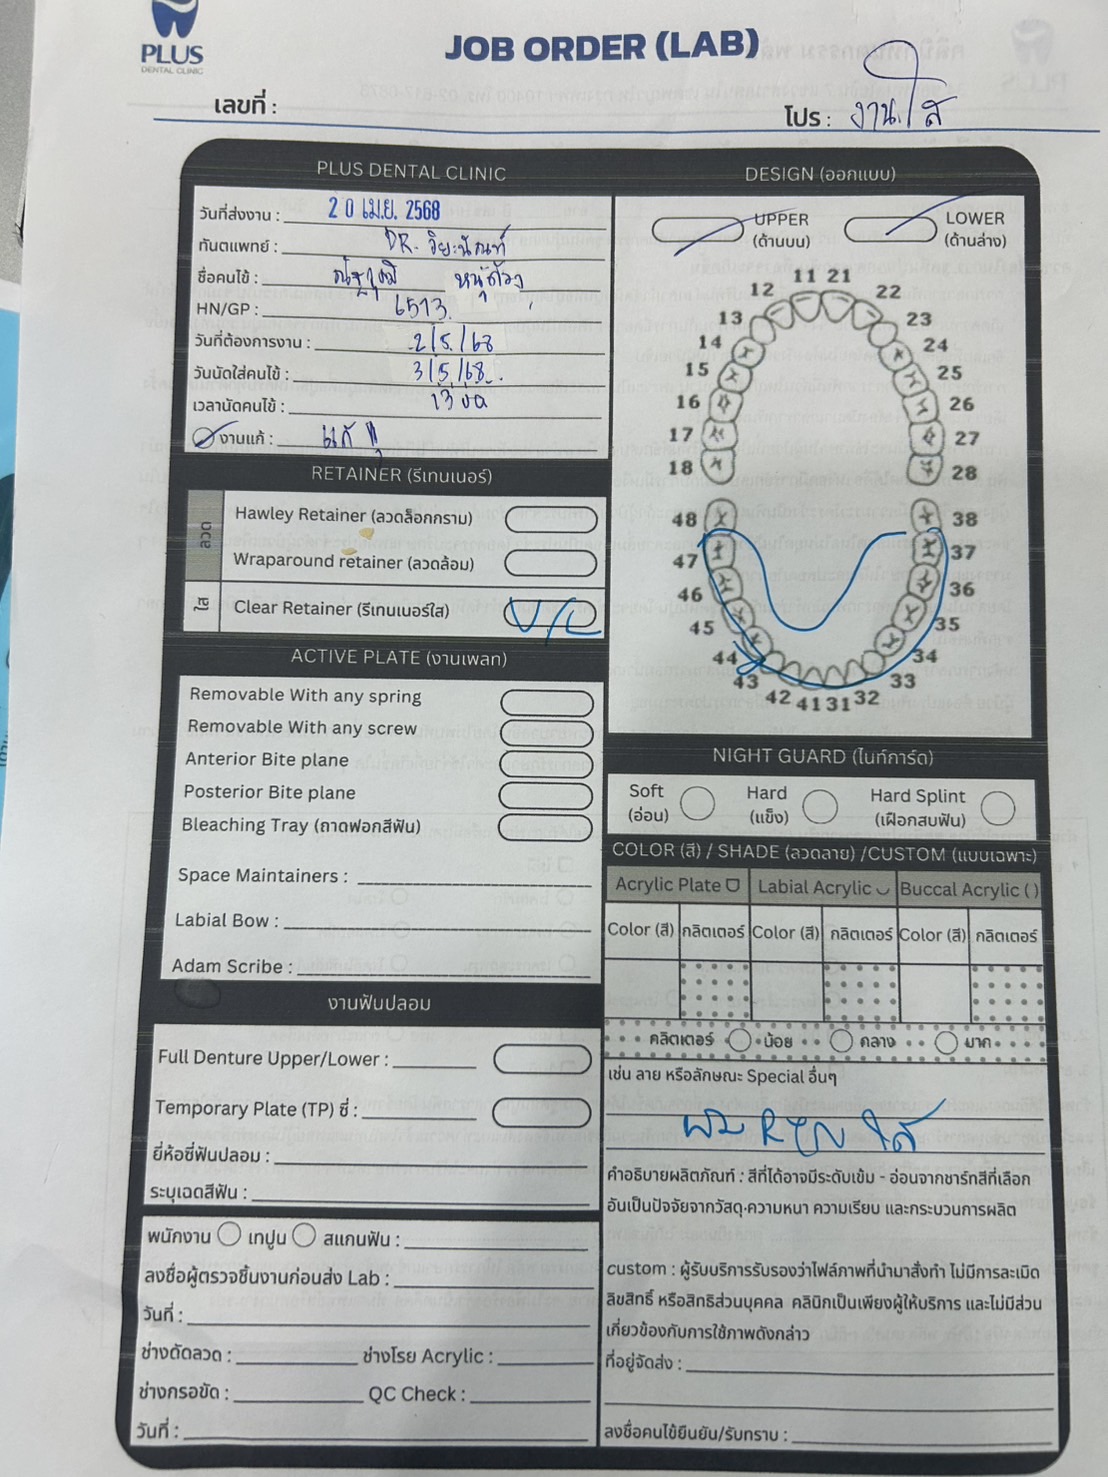 PLUS
DENTAL CLINIC
JOB ORDER (LAB)
เลขที่ :
โปร : งานใส
PLUS DENTAL CLINIC
วันที่ส่งงาน : 20 เม.ย. 2568
ทันตแพทย์ : DR.
ชื่อคนไข้ :
HN/GP : 6513
วันที่ต้องการงาน : 2/5/68
วันนัดใส่คนไข้ : 3/5/68
เวลานัดคนไข้ : 13 00
งานแก้ : แก้
RETAINER (รีเทนเนอร์)
ลวด
Hawley Retainer (ลวดล็อกกราม)
Wraparound retainer (ลวดล้อม)
ใส
Clear Retainer (รีเทนเนอร์ใส) U/L
ACTIVE PLATE (งานเพลท)
Removable With any spring
Removable With any screw
Anterior Bite plane
Posterior Bite plane
Bleaching Tray (ถาดฟอกสีฟัน)
Space Maintainers :
Labial Bow :
Adam Scribe :
งานฟันปลอม
Full Denture Upper/Lower :
Temporary Plate (TP) ซี่ :
ยี่ห้อซี่ฟันปลอม :
ระบุเฉดสีฟัน :
พนักงาน เทปูน สแกนฟัน :
ลงชื่อผู้ตรวจชิ้นงานก่อนส่ง Lab :
วันที่ :
ช่างดัดลวด : ช่างโรย Acrylic :
ช่างกรอขัด : QC Check :
วันที่ :
DESIGN (ออกแบบ)
UPPER
(ด้านบน)
LOWER
(ด้านล่าง)
11 21
12 22
13 23
14 24
15 25
16 26
17 27
18 28
48 38
47 37
46 36
45 35
44 34
43 33
42 41 31 32
NIGHT GUARD (ไนท์การ์ด)
Soft
(อ่อน)
Hard
(แข็ง)
Hard Splint
(เฝือกสบฟัน)
COLOR (สี) / SHADE (ลวดลาย) /CUSTOM (แบบเฉพาะ)
Acrylic Plate Labial Acrylic Buccal Acrylic ( )
Color (สี) กลิตเตอร์ Color (สี) กลิตเตอร์ Color (สี) กลิตเตอร์
คลิตเตอร์ น้อย กลาง มาก
เช่น ลาย หรือลักษณะ Special อื่นๆ
ใส
คำอธิบายผลิตภัณฑ์ : สีที่ได้อาจมีระดับเข้ม - อ่อนจากชาร์ทสีที่เลือก
อันเป็นปัจจัยจากวัสดุ·ความหนา ความเรียบ และกระบวนการผลิต
custom : ผู้รับบริการรับรองว่าไฟล์ภาพที่นำมาสั่งทำ ไม่มีการละเมิด
ลิขสิทธิ์ หรือสิทธิส่วนบุคคล คลินิกเป็นเพียงผู้ให้บริการ และไม่มีส่วน
เกี่ยวข้องกับการใช้ภาพดังกล่าว
ที่อยู่จัดส่ง :
ลงชื่อคนไข้ยืนยัน/รับทราบ :